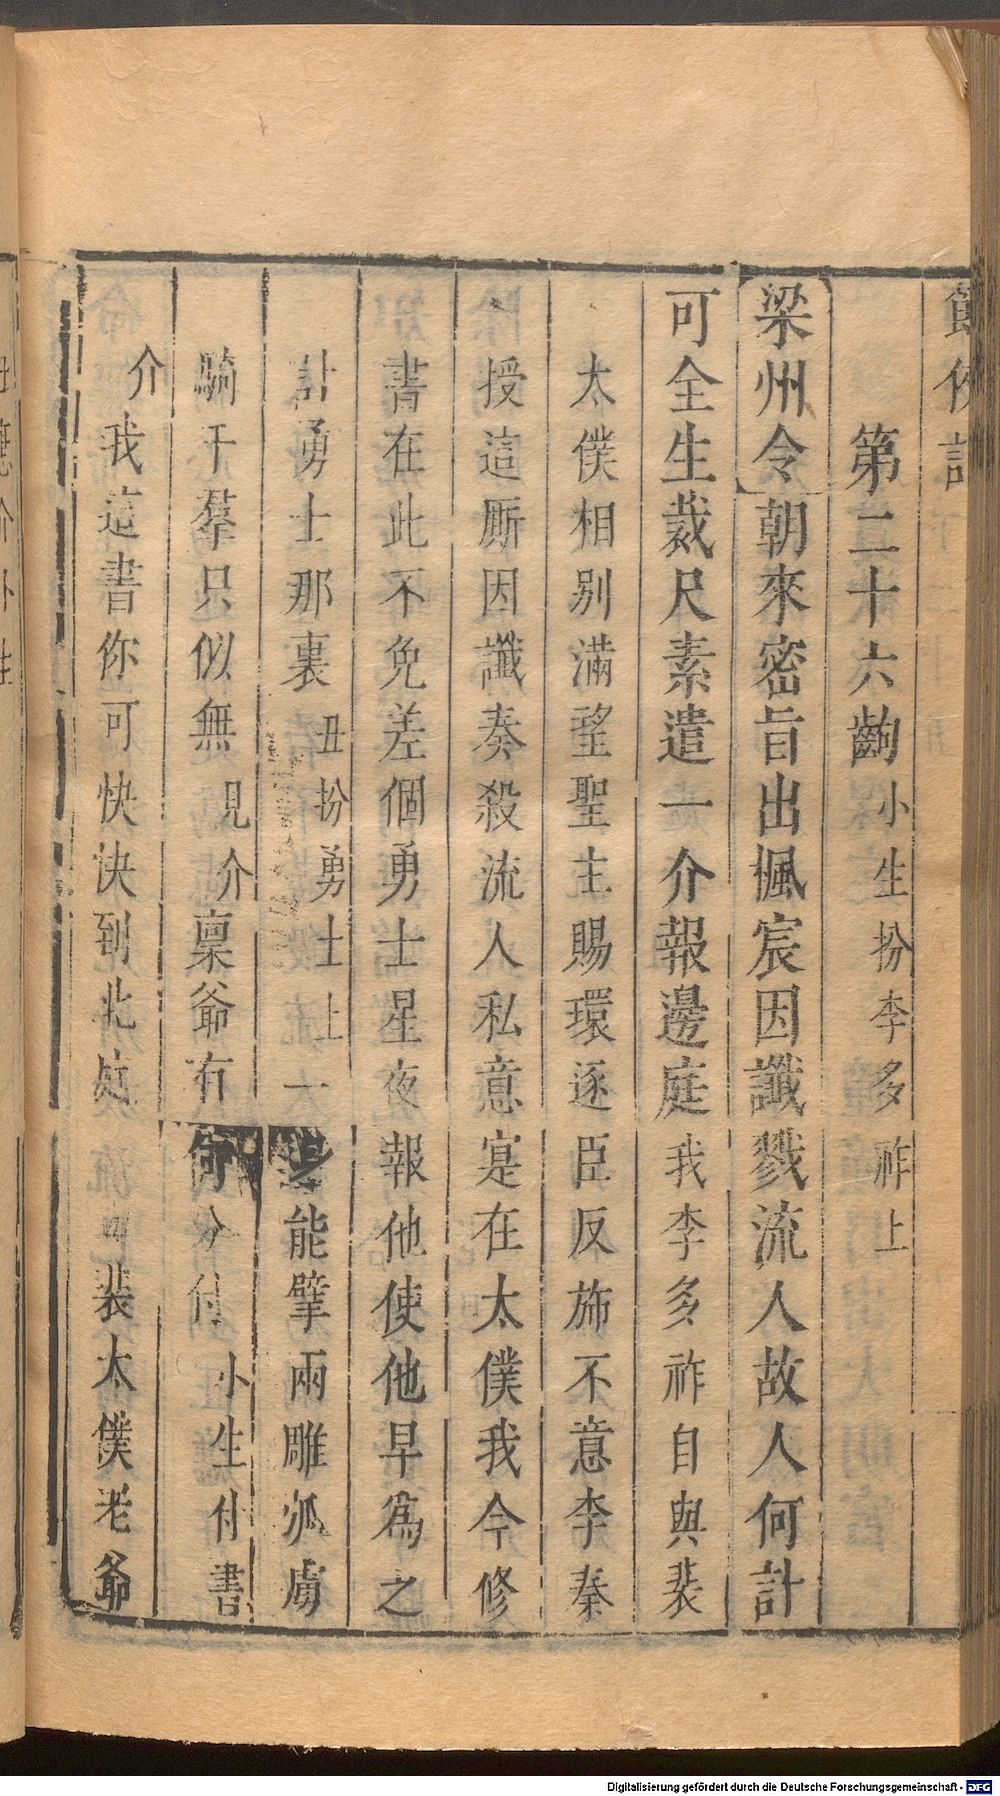 節俠記
第二十六齣 小生扮李多祚上
梁州令 朝來密旨出楓宸因讖戮流人故人何計
可全生裁尺素遣一介報邊庭 我李多祚自與裴
太僕相別滿望聖主賜環逐臣反旆不意李秦
授這厮因讖奏殺流人私意寔在太僕我今修
書在此不免差個勇士星夜報他使他早為之
計勇士那裏 丑扮勇士上 一 能擘兩雕弧虜
騎千羣只似無 見介 稟爺有何分付 小生付書
介 我這書你可快快到北庭流 裴太僕老爺
Digitalisierung gefördert durch die Deutsche Forschungsgemeinschaft - DFG